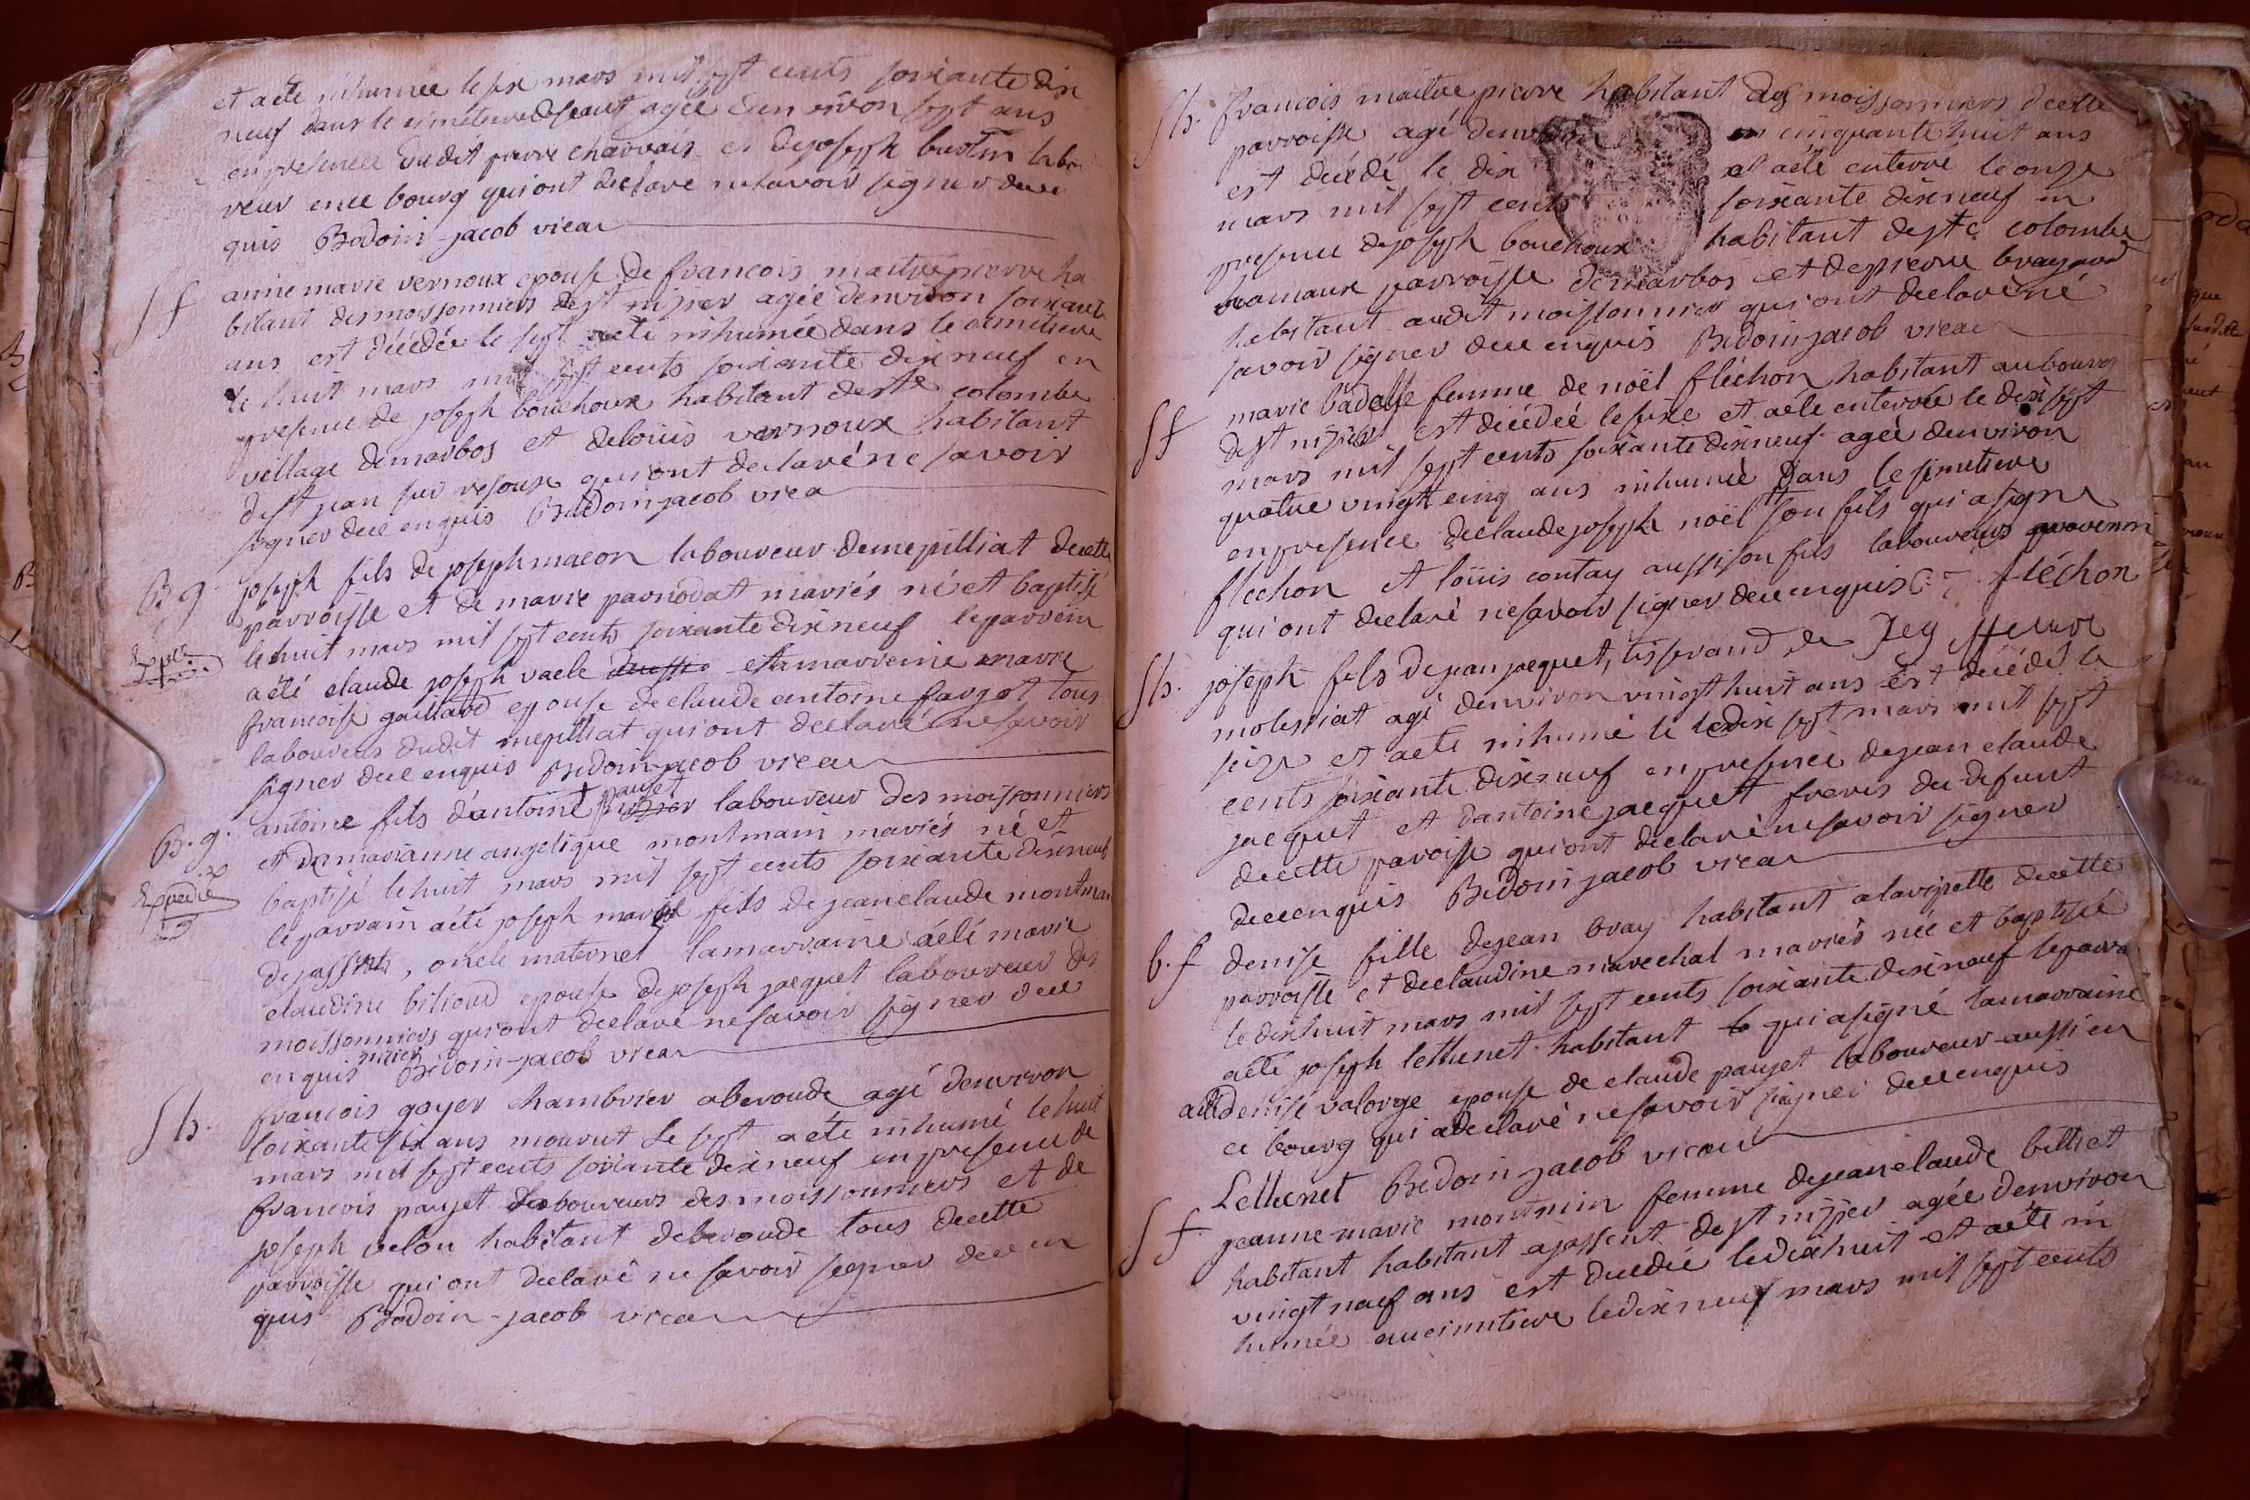 et a été inhumée le six mars mil sept cents soixante dix
neuf dans le cimetiere agée denviron sept ans
en presence dudit pierre charvais et de joseph burtin labou
reur en ce bourg qui ont declaré ne savoir signer de ce
quis Bedoin-jacob vicai
Sf anne marie vernoux epouse de francois maitrepierre ha
bitant des moissonniers de st nizier agée denviron soixante
ans est décédée le sept a été inhumée dans le cimetiere
le huit mars mil sept cents soixante dix neuf en
presence de joseph bouchoux habitant de ste colombe
village de marbos et de loüis vernoux habitant
de st jean sur resouse qui ont declaré ne savoir
signer de ce enquis Bedoin jacob vica
B g. joseph fils de joseph macon laboureur de mepilliat de cette
parroisse et de marie parnodat mariés né et baptisé
le huit mars mil sept cents soixante dix neuf le parrein
a été claude joseph vacle et la marreine marie
francoise gaillard epouse de claude antoine fargot tous
laboureurs dudit mepilliat qui ont declaré ne savoir
signer de ce enquis Bedoin-jacob vicai
pauget
B. g. antoine fils d'antoine laboureur des moissonniers
et de marianne angelique montmain mariés né et
Expedié baptisé le huit mars mil sept cents soixante dix neuf
le parrain a été joseph marie fils de jean claude montmain
de jassents, oncle maternel la marraine a été marie
claudine billoud epouse de joseph jacquet laboureur des
moissonniers qui ont declaré ne savoir signer de ce
enquis Bedoin-jacob vicai
S h. francois goyer chambrier a beroude agé denviron
soixante six ans mourut le sept a été inhumé le huit
mars mil sept cents soixante dix neuf en presence de
francois pauget laboureurs des moissonniers et de
joseph velon habitant de beroude tous de cette
parroisse qui ont declaré ne savoir signer de ce en
quis Bedoin-jacob vicai
S h. francois maitrepierre habitant des moissonniers de cette
parroisse agé denviron cinquante huit ans
est décédé le dix et a été enterré le onze
mars mil sept cents soixante dix neuf en
presence de joseph bouchoux habitant de ste colombe
hamaux parroisse de marbos et de pierre brayard
habitant audit moissonnier qui ont declaré né
savoir signer de ce enquis Bedoin jacob vicai
S f marie badasse femme de noël fléchon habitant au bourg
de st nizier est décédeé le seize et a été enterrée le dix sept
mars mil sept cents soixante dix neuf agée denviron
quatre vingt cinq ans inhumée dans le simetiere
en presence de claude joseph noël son fils qui a signé
flechon et loüis contay aussi son fils laboureurs
qui ont declaré ne savoir signer de ce enquis fléchon
S h. joseph fils de jean jacquet, tisserand de
molessiat agé denviron vingt huit ans est décédé le
seize et a été inhumé le le dix sept mars mil sept
cents soixante dix neuf en presence de jean claude
jacquet et dantoine jacquet freres du defunt
de cette paroisse qui ont declaré ne savoir signer
de ce enquis Bedoin jacob vicai
b. f denise fille de jean bray habitant a la vizette de cette
parroisse et de claudine marechal mariés née et baptisé
le dix huit mars mil sept cents soixante dix neuf le parra
a été joseph lethenet habitant qui a signé la marraine
a été denise valorge epouse de claude pauget laboureur aussi en
ce bourg qui a declaré ne savoir signer de ce enquis
Lethenet Bedoin jacob vicai
S f jeanne marie montmin femme de jean claude billiet
habitant habitant a jassent de st nizier agée denviron
vingt neuf ans est décédée le dix huit et a été in
humée au cimetiere le dix neuf mars mil sept cents